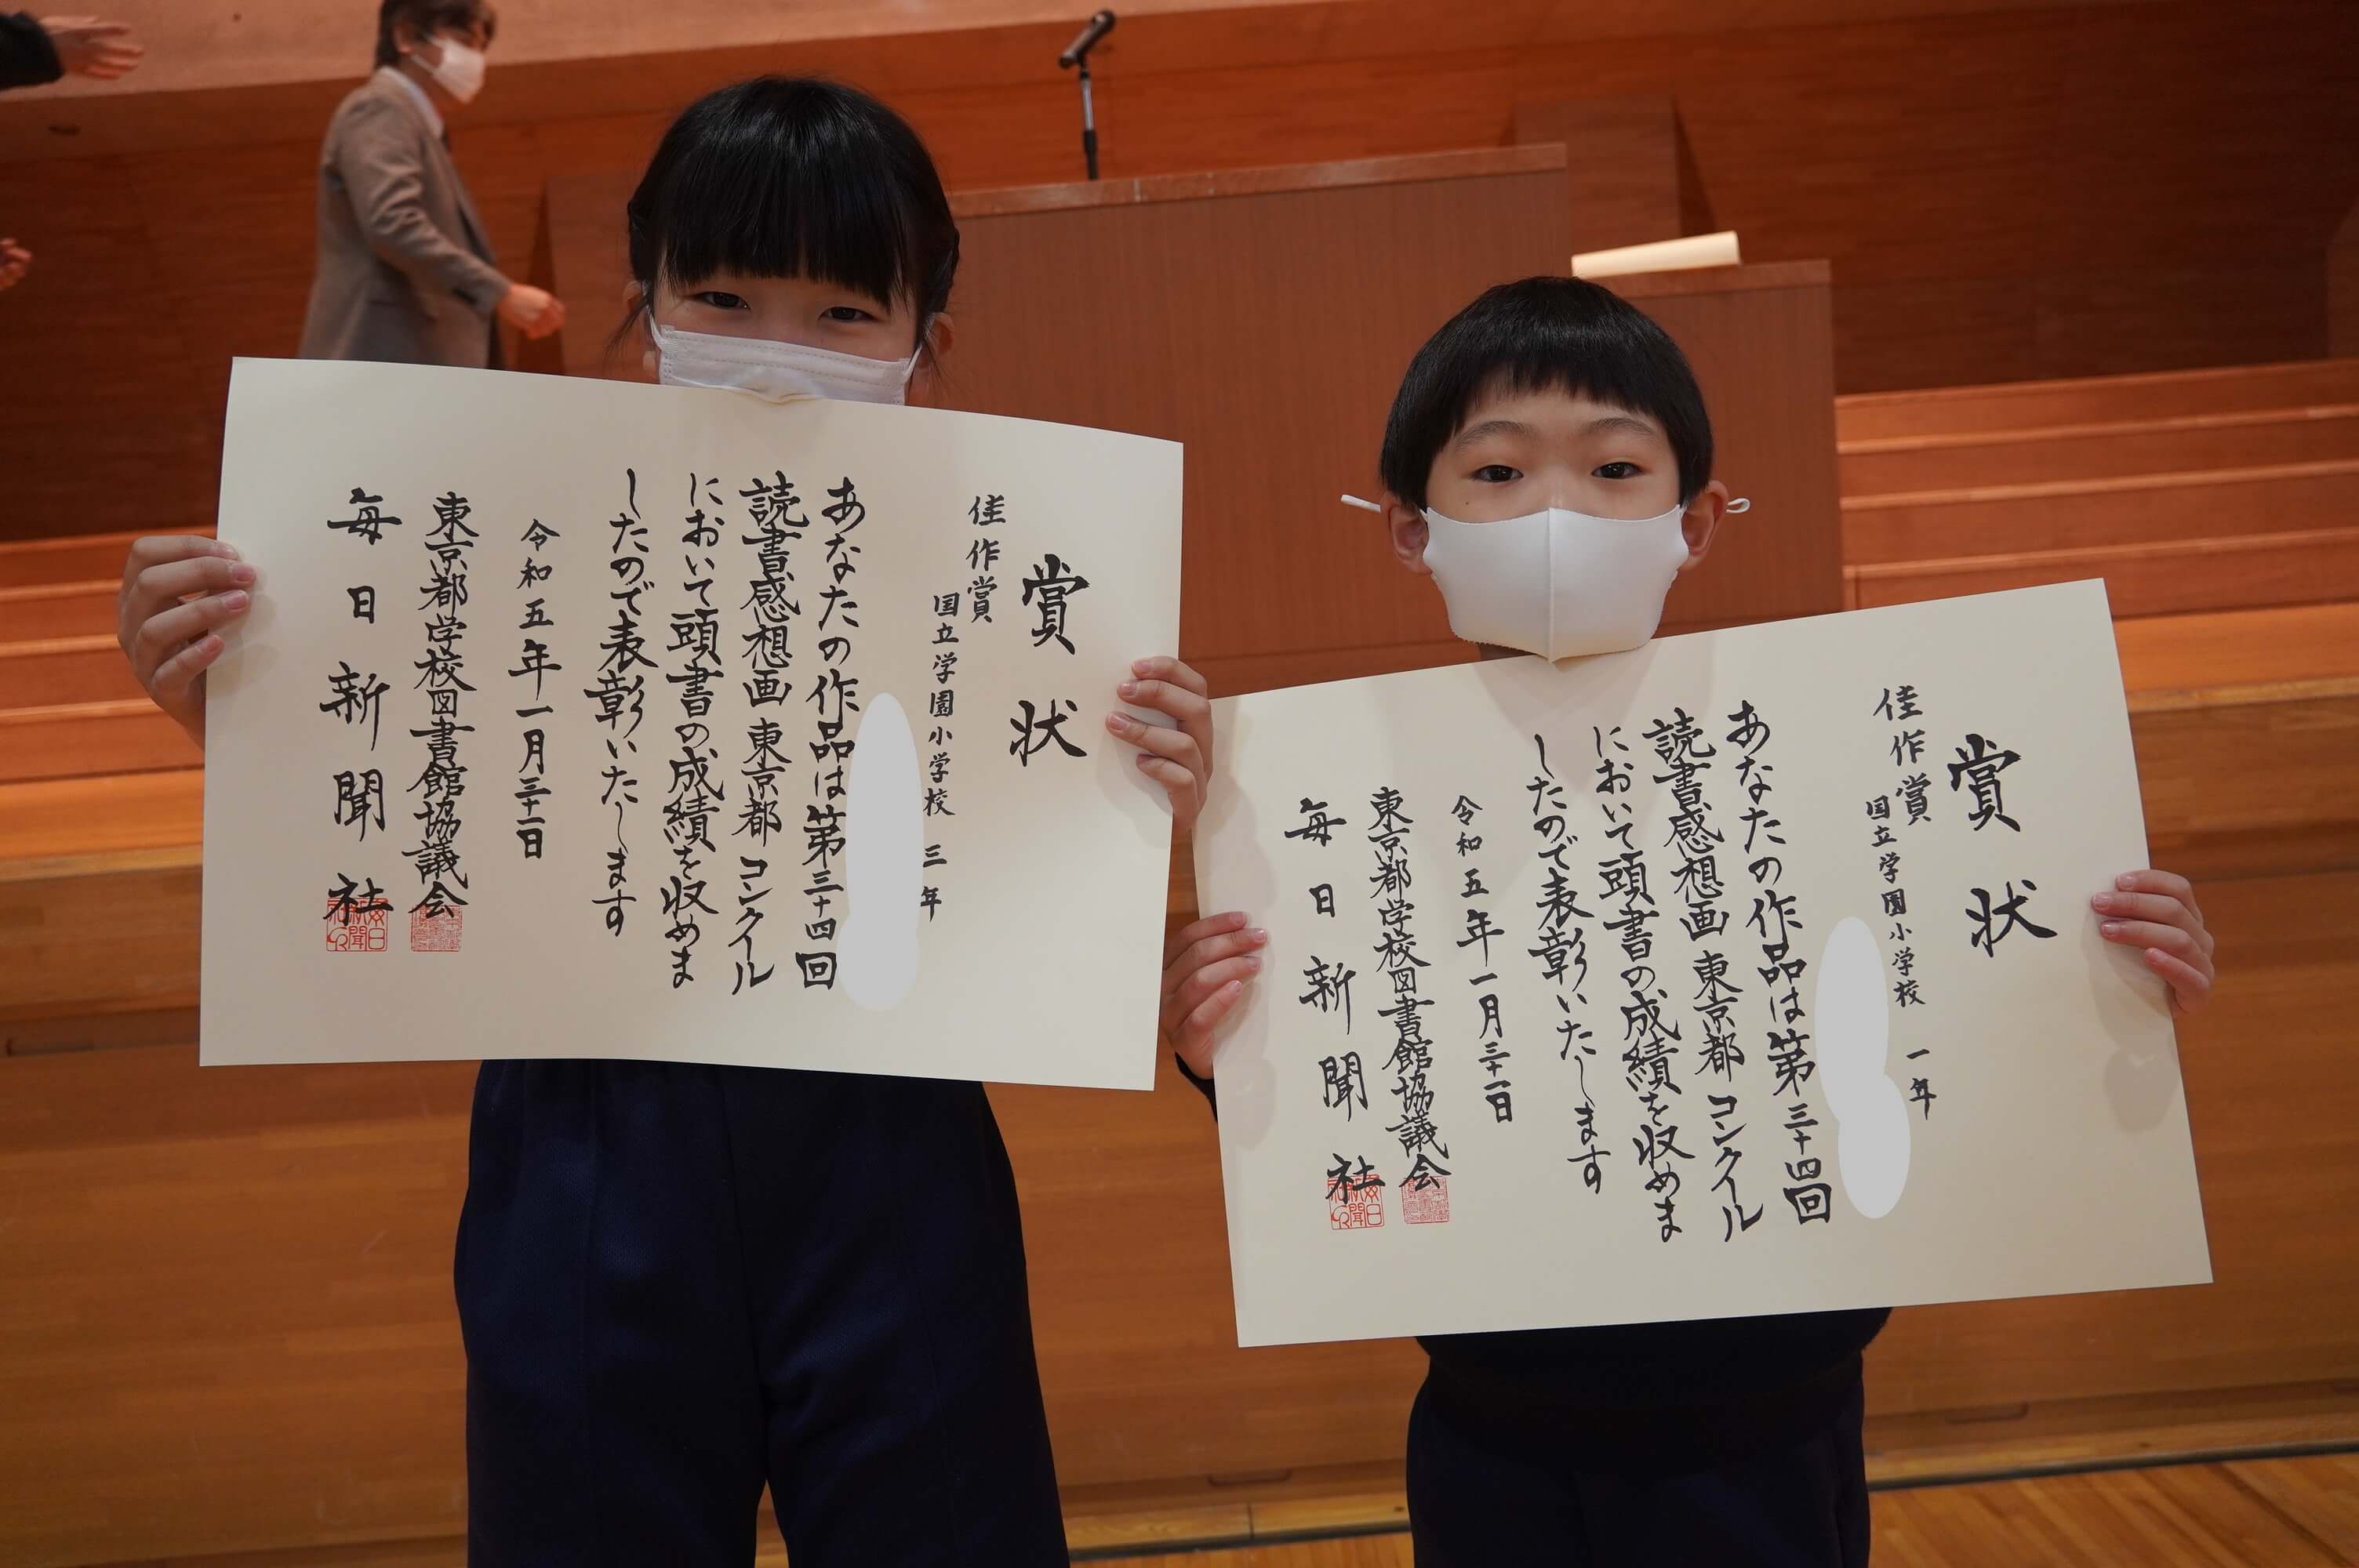 賞状
佳作賞
国立学園小学校 三年
あなたの作品は第三十四回
読書感想画東京都コンクール
において頭書の成績を収めま
したので表彰いたします
令和五年一月三十一日
東京都学校図書館協議会
毎日新聞社
賞状
佳作賞
国立学園小学校 一年
あなたの作品は第三十四回
読書感想画東京都コンクール
において頭書の成績を収めま
したので表彰いたします
令和五年一月三十一日
東京都学校図書館協議会
毎日新聞社